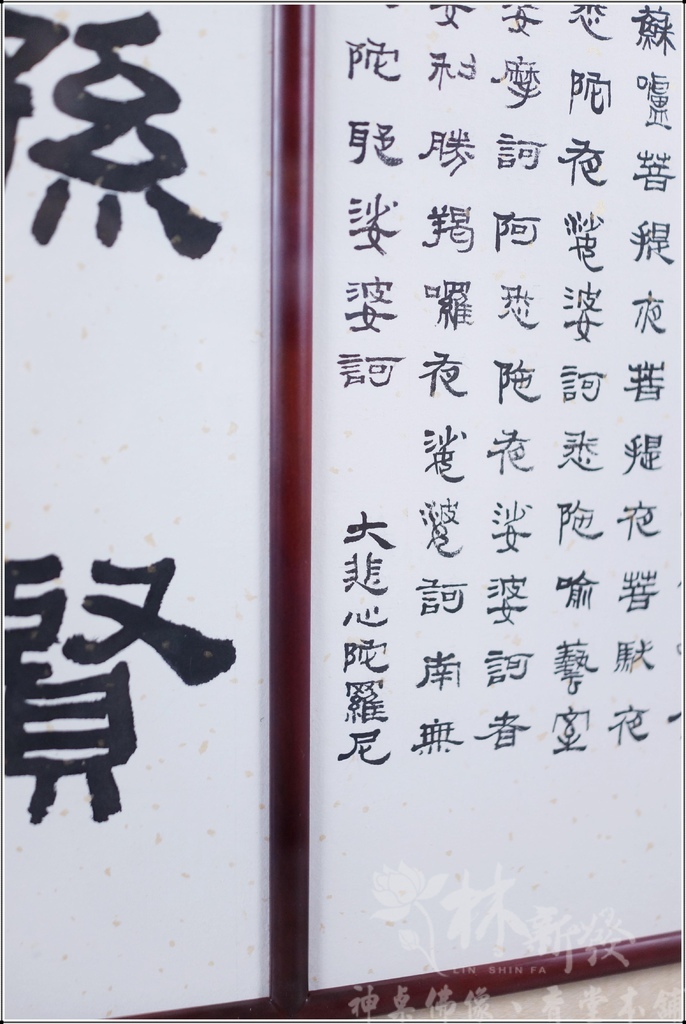 蘇嚧菩提夜菩提夜菩馱夜
悉陀夜娑婆訶悉陀喻藝室
婆摩訶阿悉陀夜娑婆訶者
利勝羯囉夜娑婆訶南無
陀耶娑婆訶
大悲心陀羅尼
孫
賢
林新發
LIN SHIN FA
神桌佛像、香堂本舖